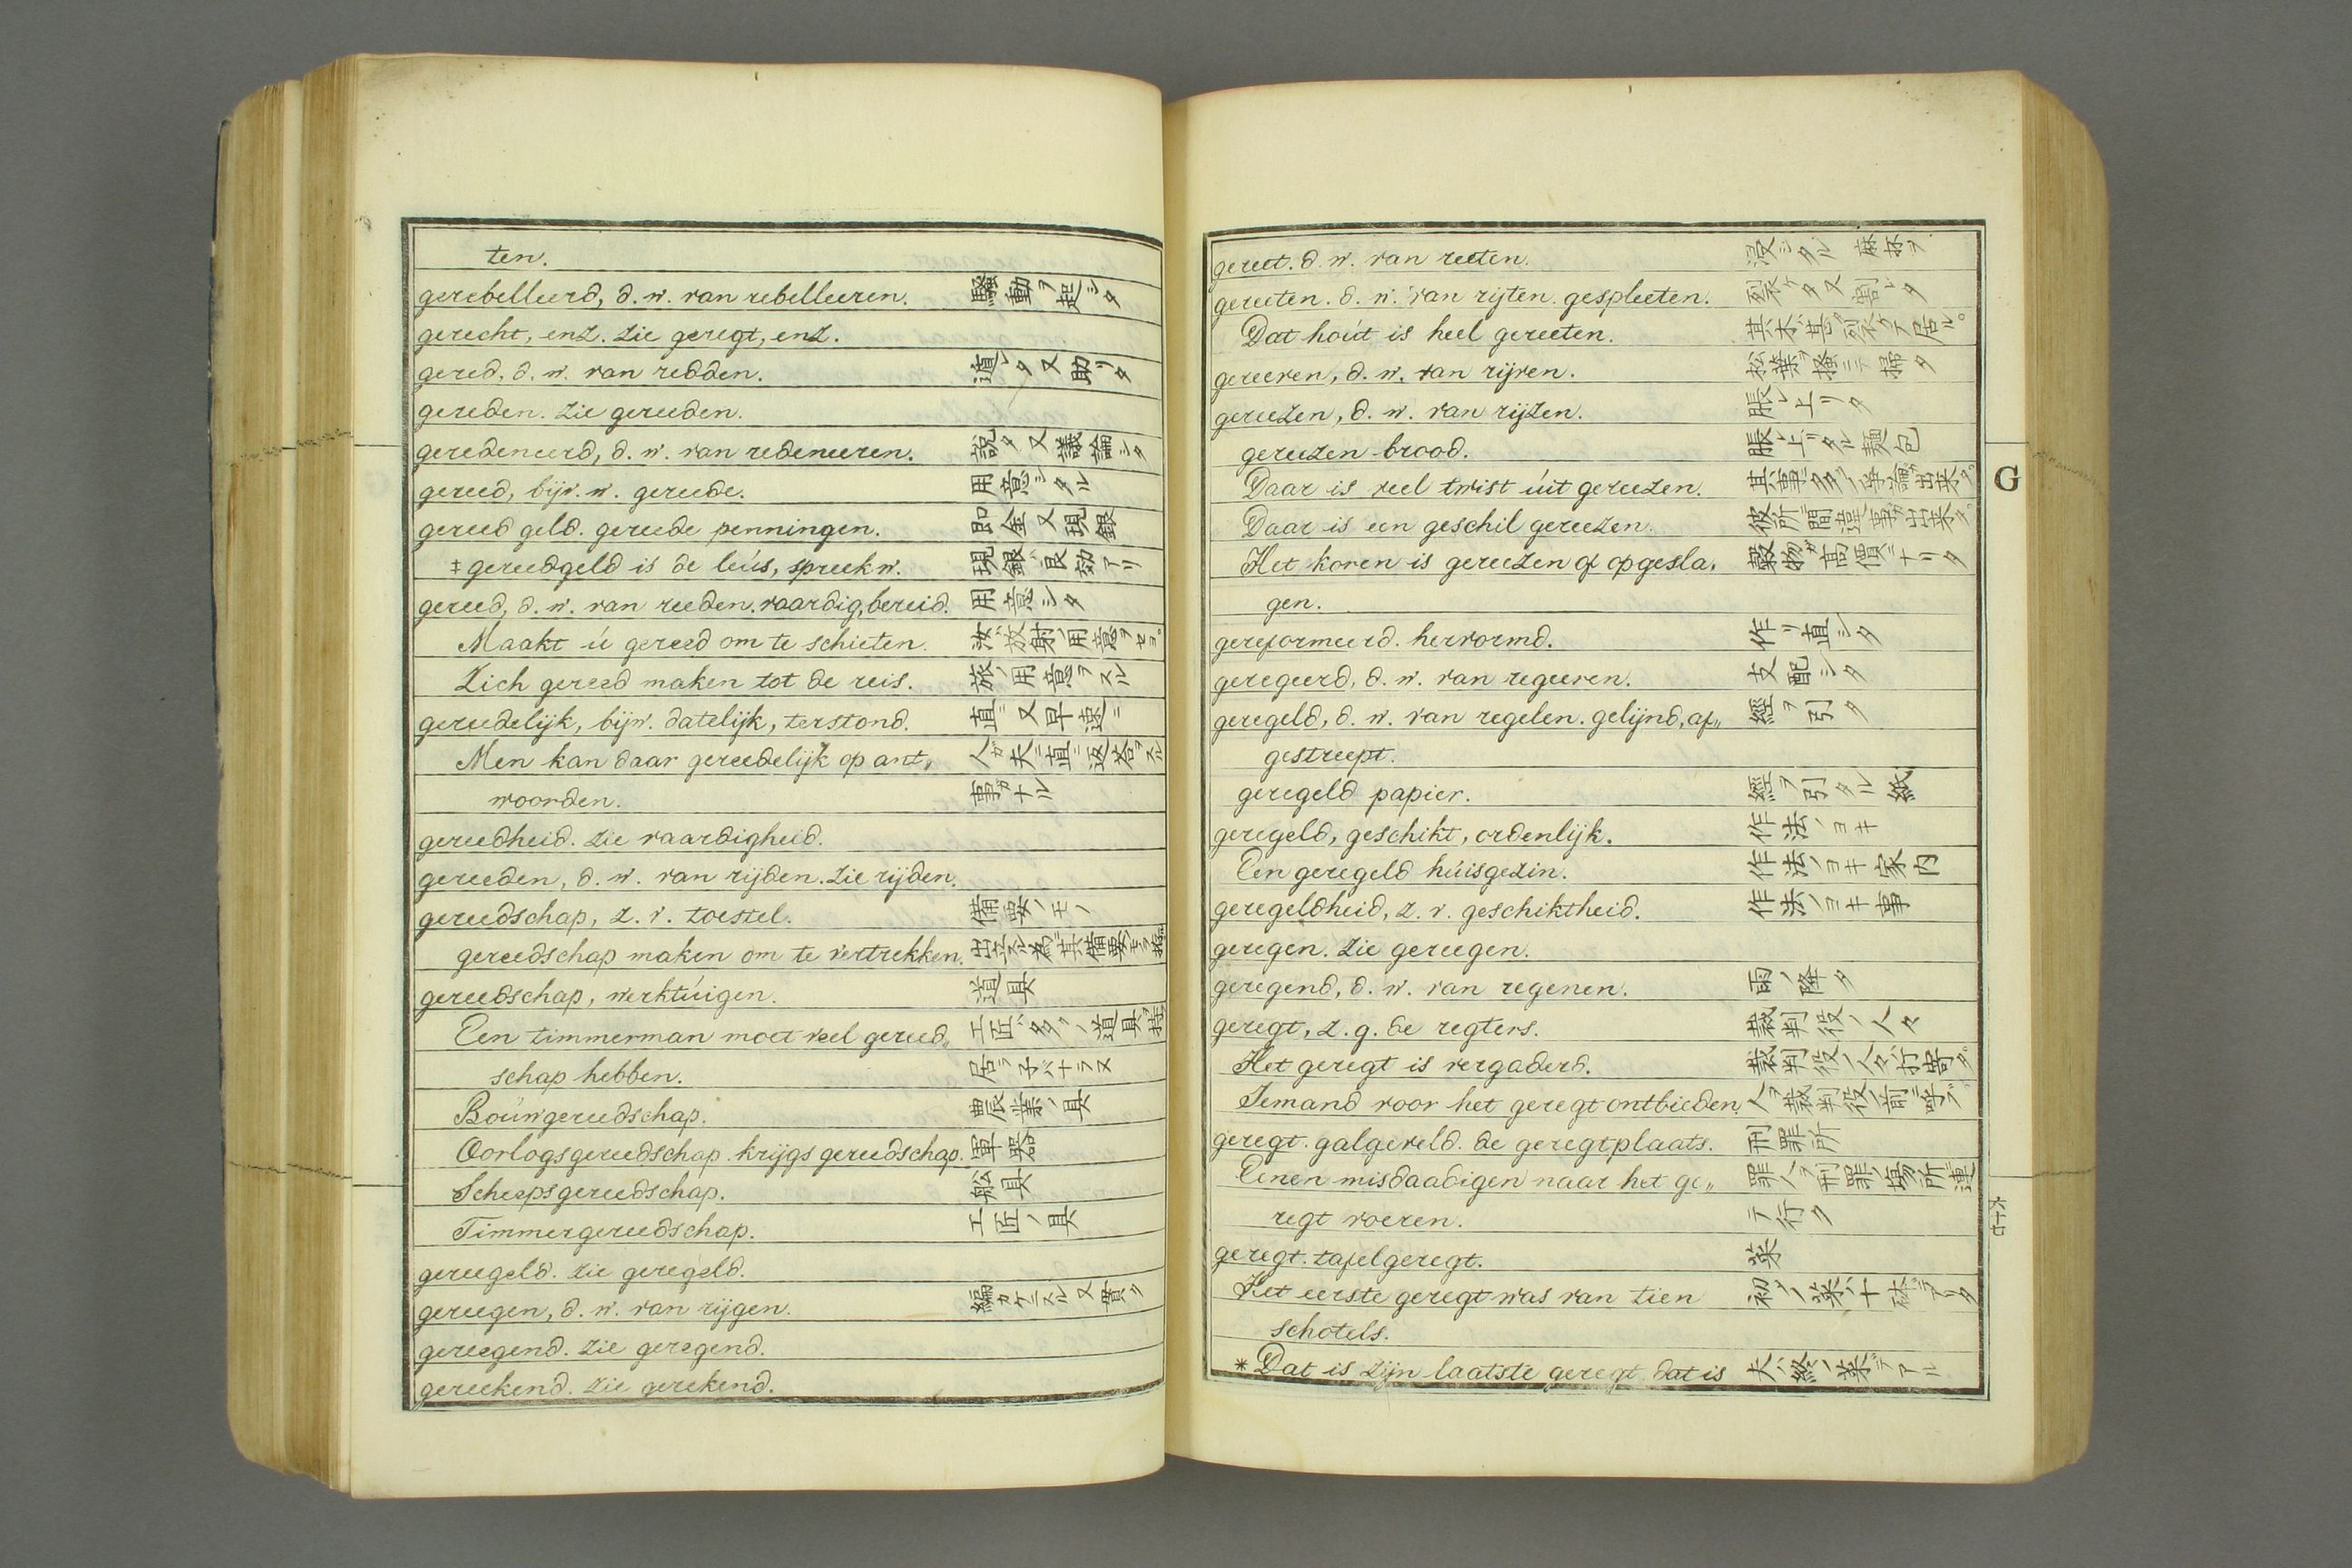 ten.
gerebelleerd, d. w. van rebelleeren. 騒動ヲ起シタ
gerecht, enz. zie geregt, enz.
gered, d. w. van redden. 遁レタ又助リタ
gereden. zie gereeden.
geredeneerd, d. w. van redeneeren. 説タ又議論シタ
gereed, bijv. w. gereede. 用意シタル
gereed geld. gereede penningen. 即金又現銀
‡ gereedgeld is de leús, spreekw. 現銀ハ良効アリ
gereed, d. w. van reeden. vaardig, bereid. 用意シタ
Maakt ú gereed om te schieten. 汝ガ放射ノ用意ヲセヨ
Zich gereed maken tot de reis. 旅ノ用意ヲスル
gereedelijk, bijw. datelijk, terstond. 直ニ又早速ニ
Men kan daar gereedelijk op ant„ 人ガ夫ニ直ニ返答スル
woorden. 事ガナル
gereedheid. zie vaardigheid.
gereeden, d. w. van rijden. zie rijden.
gereedschap, z. v. toestel. 備要ノモノ
gereedschap maken om te vertrekken. 出立スル為ニ其備要
gereedschap, werktúigen. 道具
Een timmerman moet veel gereed„ 工匠ハ多クノ道具ヲ持
schap hebben. 居ラ子バナラヌ
Boúwgereedschap. 農業ノ具
Oorlogsgereedschap. krijgs gereedschap. 軍器
Scheepsgereedschap. 舩具
Timmergereedschap. 工匠ノ具
gereegeld. zie geregeld.
gereegen, d. w. van rijgen. 編カケニスル又貫ク
gereegend. zie geregend.
gereekend. zie gerekend.
gereet. d. w. van reeten. 浸シタル 麻抔ヲ
gereeten. d. w. van rijten. gespleeten. 裂ケタ又割レタ
Dat hoút is heel gereeten. 其木ハ甚ダ裂ケテ居ル
gereeven, d. w. van rijven. 松葉ヲ掻ニテ掃タ
gereezen, d. w. van rijzen. 脹レ上リタ
gereezen brood. 脹レ上リタル麺包
Daar is veel twist úit gereezen. 其事ニ多クノ争論ガ出来タ
Daar is een geschil gereezen. 彼所ニ間違事ガ出来タ
Het koren is gereezen of opgesla„ 穀物ガ高價ニナリタ
gen.
gereformeerd. hervormd. 作リ直シタ
geregeerd, d. w. van regeeren. 支配シタ
geregeld, d. w. van regelen. gelijnd, af„ 經ヲ引タ
gestreept.
geregeld papier. 經ヲ引タル紙
geregeld, geschikt, ordenlijk. 作法ノヨキ
Een geregeld húisgezin. 作法ノヨキ家内
geregeldheid, z. v. geschiktheid. 作法ノヨキ事
geregen. zie gereegen.
geregend, d. w. van regenen. 雨ノ降タ
geregt, z. g. de regters. 裁判役ノ人々
Het geregt is vergaderd. 裁判役ノ人々ガ打寄タ
Iemand voor het geregt ontbieden. 人ヲ裁判役ノ前ニ呼ブ
geregt. galgeveld. de geregtplaats. 刑罪所
Eenen misdaadigen naar het ge„ 罪人ヲ刑罪ノ場所ニ連
regt voeren. テ行ク
geregt. tafelgeregt. 菜
Het eerste geregt was van tien 初ノ菜ハ十砵デアリタ
schotels.
* Dat is zijn laatste geregt. dat is 夫ハ終ノ菜デアル
G